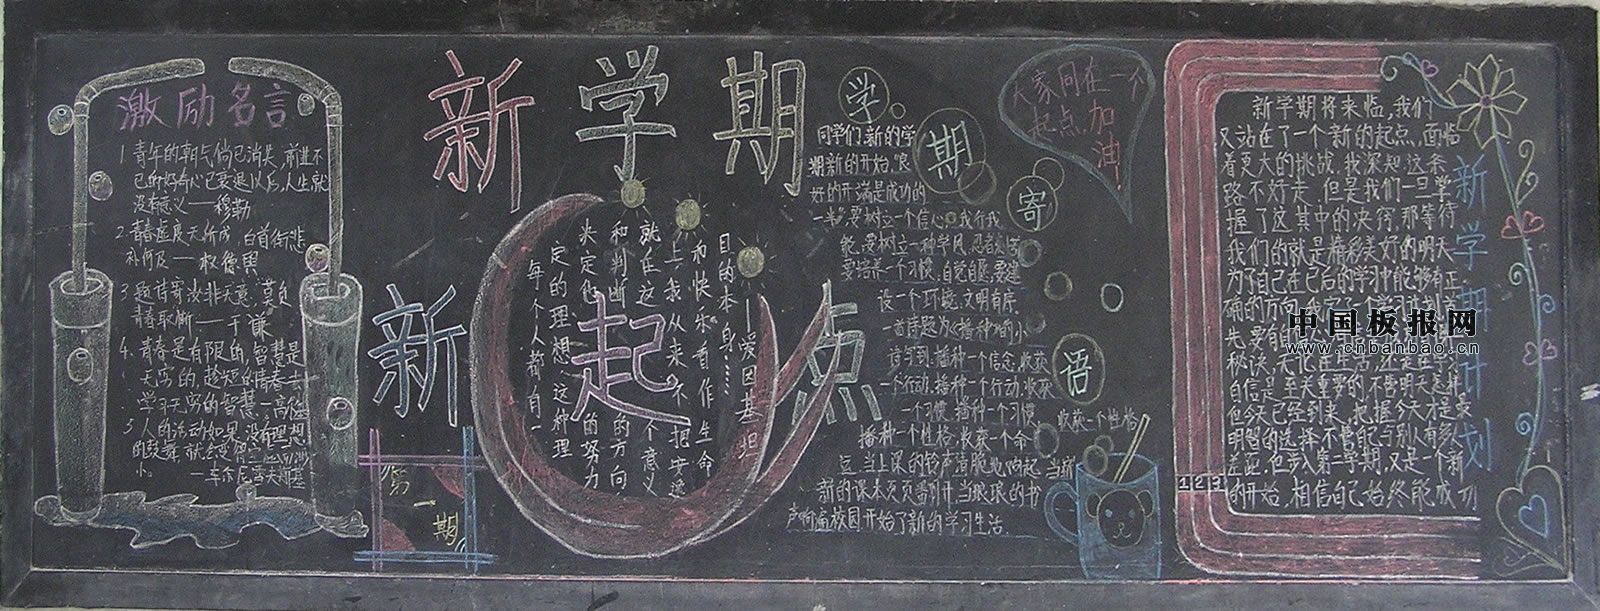 激励名言
1 青年的朝气倘已消失,前进不
已的好奇心已衰退以后,人生就
没有意义——穆勒
2 青春虚度无所成,白首衔悲
补何及——权德舆
3 题诗寄汝非天意,莫负
青春取
4. 青春是有限的,智慧是
无穷的,趁短的青春去
学习无穷的智慧—高
5 人的活动如果没有理想
的鼓舞,就会变得空虚而渺
小。——车尔尼雪夫斯基
新学期
新起点
第一期
每个人都有一
定的理想,这种理
决定他的努力
和判断的方向
就在这个意义
上,我从来不把安逸
和快乐看作生命
目的本身……
——爱因基坦
学期寄语
同学们,新的学
期新的开始,良
好的开端是成功的
一半,要树立一个信心,我行我
能,要树立一种学风,
要培养一个习惯,自觉自愿,要建
设一个环境,文明有序.
一首序题为《播种》的小
诗写到:播种一个信念,收获
一个行动,播种一个行动,收获
一个习惯,播种一个习惯,收获一个性格
播种一个性格,收获一个命
运,当上课的铃声清脆地响起,当崭
新的课本页页翻开,当琅琅的书
声响遍校园开始了新的学习生活.
大家同在一个
起点,加油!
新学期计划
新学期将来临,我们
又站在了一个新的起点,面临
着更大的挑战.我深知这条
路不好走,但是我们一旦掌
握了这其中的决窍,那等待
我们的就是精彩美好的明天
为了自己在已后的学习中能够有正
确的方向,我定了一个学习计划首
先,要有
秘诀,无论在生活,还是在学习
自信是至关重要的,不管明天怎样
但今天已经到来,把握今天才是最
明智的选择.不管能与别人有多大
差距,但步入第二学期,又是一个新
的开始,相信自己始终能成功
1 2 3
中国板报网
www.cnbanbao.cn